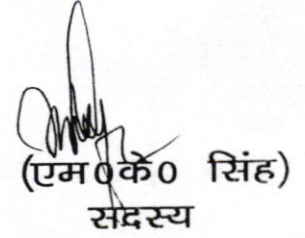 (एम0के0 सिंह)
सदस्य